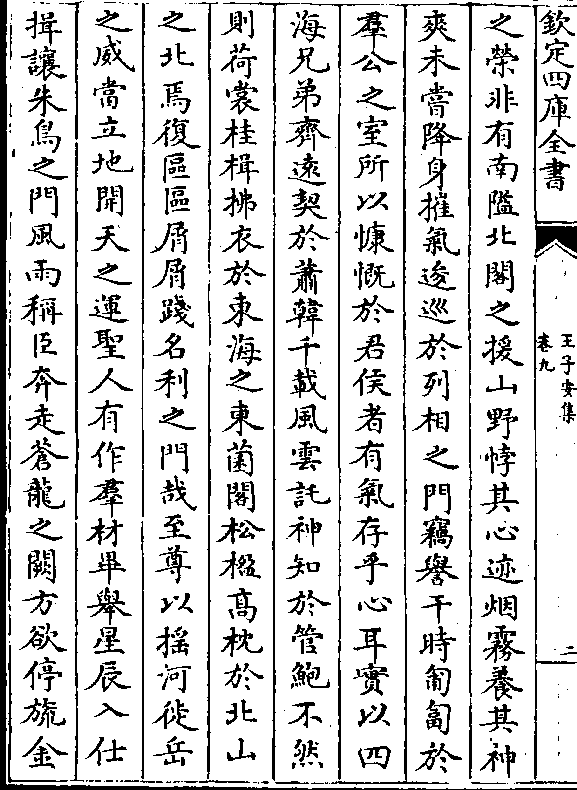 欽定四庫全書
王子安集
卷九
二
之榮非有南隘北閣之援山野悖其心迹烟霧養其神
爽未嘗降身摧氣逡巡於列相之門竊譽干時匍匐於
羣公之室所以慷慨於君侯者有氣存乎心耳實以四
海兄弟齊遠契於蕭韓千載風雲託神知於管鮑不然
則荷裳桂楫拂衣於東海之東菌閣松楹高枕於北山
之北焉復區區屑屑踐名利之門哉至尊以搖河徙岳
之威當立地開天之運聖人有作羣材畢舉星辰入仕
揖讓朱鳥之門風雨稱臣奔走蒼龍之闕方欲停旒金